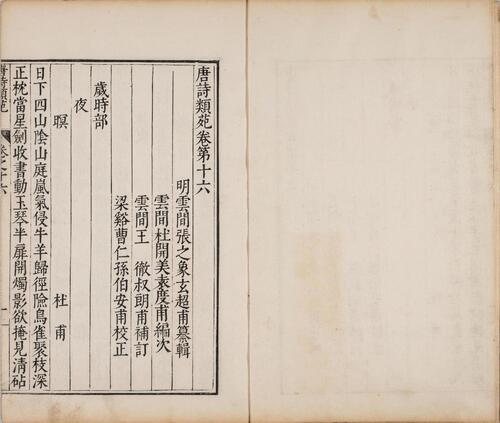 唐詩類苑卷第十六
明雲間張之象玄超甫纂輯
雲間杜開美袠度甫編次
雲間王　徹叔朗甫補訂
梁谿曹仁孫伯安甫校正
歲時部
夜
暝　杜甫
日下四山陰山庭嵐氣侵牛羊歸徑險鳥雀聚枝深
正枕當星劍收書動玉琴半扉開燭影欲掩見清砧
唐詩類苑　卷之十六　一